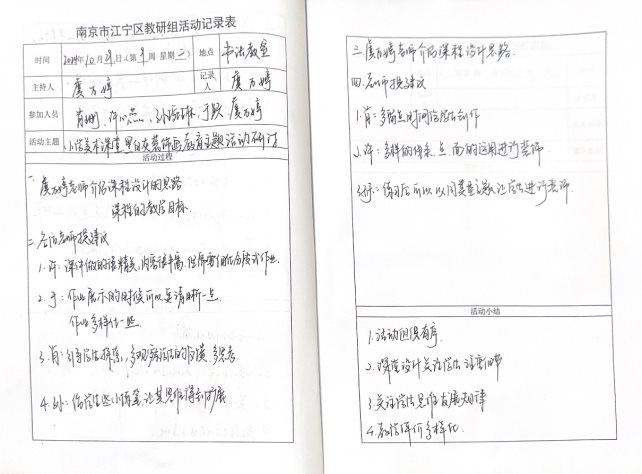 南京市江宁区教研组活动记录表
时间 2024年10月29日(第9周 星期二) 地点 书法教室
主持人 虞万婷 记录人 虞万婷
参加人员 肖 许心蕊、孙 于 虞万婷
活动主题 小学美术课堂黑白灰装饰画教育主题活动研讨
活动过程
一、虞万婷老师介绍课程设计的思路
课程的教学目标.
二、各位老师提建议
1.许:课件做的很精美,内容很丰富,但需要细化分段式作业.
2.于:作业展示的时候可以更清晰一点
作业多样化一些.
3.肖:引导学生探索,多观察 的 多思考.
4.孙:给学生些小 让其思维得到扩展.
三.虞万婷老师介绍课程设计思路.
四.老师提建议
1.肖:多留点时间给学生创作
2.许:多样的线条、点、面的运用进行装饰.
3.孙:练习后可以以同类型主题让学生进行装饰
活动小结
1.活动组织有序.
2.课堂设计关注学生 注重细节
3.关注学生思维发展规律
4.教学评价多样化.